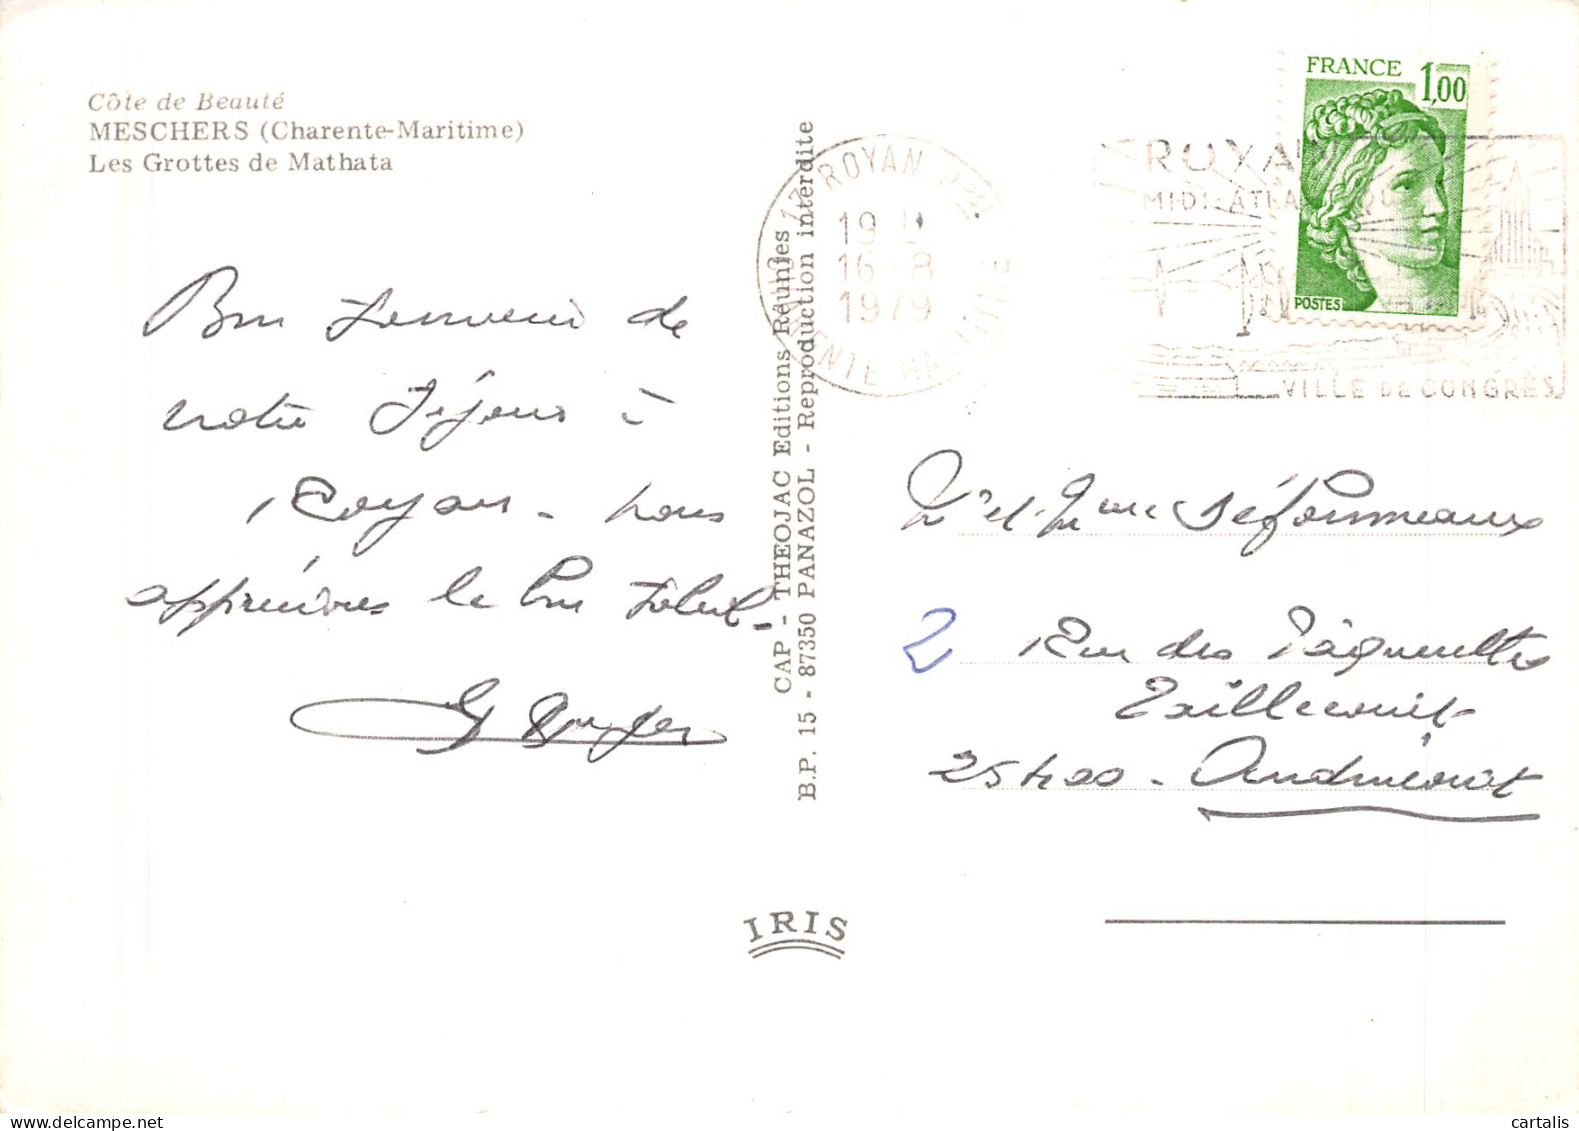 Côte de Beauté
MESCHERS (Charente-Maritime)
Les Grottes de Mathata
Bon souvenir de
notre séjour à
Royan - nous
apprécions le bon soleil -
CAP - THEOJAC Editions Réunies
B.P. 15 - 87350 PANAZOL - Reproduction interdite
IRIS
17 ROYAN PPAL
19 H
16-8
1979
CHARENTE MARITIME
ROYAN
MIDI-ATLANTIQUE
VILLE DE CONGRÈS
FRANCE 1,00
POSTES
Mr et Mme Déforneaux
2 Rue des Pâquerettes
Taillecourt
25400 - Audincourt
cartalis
delcampe.net